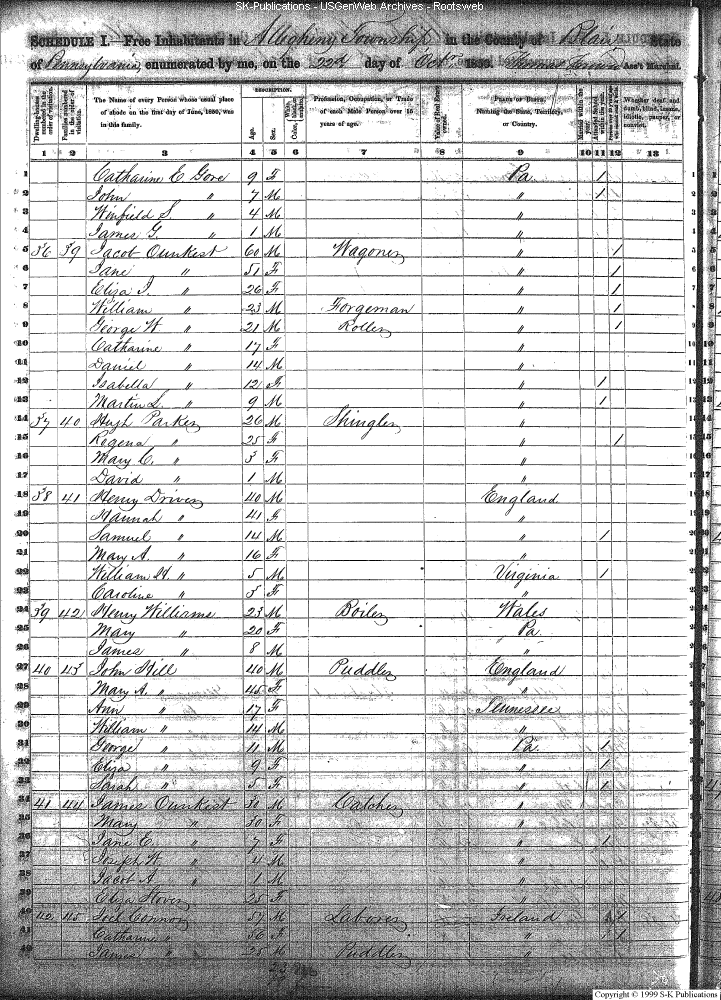 SK-Publications - USGenWeb Archives - Rootsweb
SCHEDULE I. Free Inhabitants in Allegheny Township in the County of Blair State
of Pennsylvania enumerated by me, on the 22d day of Octr 1850. Ass't Marshal.
DESCRIPTION.
Dwelling-houses numbered in the order of visitation.
Families numbered in the order of visitation.
The Name of every Person whose usual place of abode on the first day of June, 1850, was in this family.
Age.
Sex.
Profession, Occupation, or Trade of each Male Person over 15 years of age.
Value of Real Estate owned.
PLACE OF BIRTH. Naming the State, Territory, or Country.
Married within the year.
Whether deaf and dumb, blind, insane, idiotic, pauper, or convict.
1 2 3 4 5 6 7 8 9 10 11 12 13
1 Catharine E. Gore 9 F Pa. /
2 John " 7 M " /
3 Winfield S. " 4 M "
4 James G. " 1 M "
5 36 39 Jacob Ounkest 60 M Wagoner " /
6 Jane " 51 F " /
7 Eliza J. " 26 F " /
8 William " 23 M Forgeman " /
9 George W. " 21 M Roller " /
10 Catharine " 17 F "
11 Daniel " 14 M "
12 Isabella " 12 F " /
13 Martin L. " 9 M " /
14 37 40 Hugh Parker 26 M Shingler "
15 Regena " 25 F " /
16 Mary C. " 3 F "
17 David " 1 M "
18 38 41 Henry Driver 40 M England
19 Hannah " 41 F "
20 Samuel " 14 M " /
21 Mary A. " 16 F "
22 William H. " 5 M Virginia /
23 Caroline " 3 F "
24 39 42 Henry Williams 23 M Boiler Wales
25 Mary " 20 F Pa.
26 James " 8 M "
27 40 43 John Hill 40 M Puddler England
28 Mary A. " 45 F "
29 Ann " 17 F Tennessee
30 William " 14 M "
31 George " 11 M Pa. /
32 Eliza " 9 F " /
33 Sarah " 5 F " /
34 41 44 James Ounkest 30 M Catcher "
35 Mary " 30 F "
36 Jane E. " 7 F " /
37 Joseph W. " 4 M "
38 Jacob A. " 1 M "
39 Eliza 25 F "
40 42 45 Joel Connor 57 M Laborer Ireland /
41 Catharine " 56 F " /
42 James " 25 M Puddler "
Copyright © 1999 S-K Publications